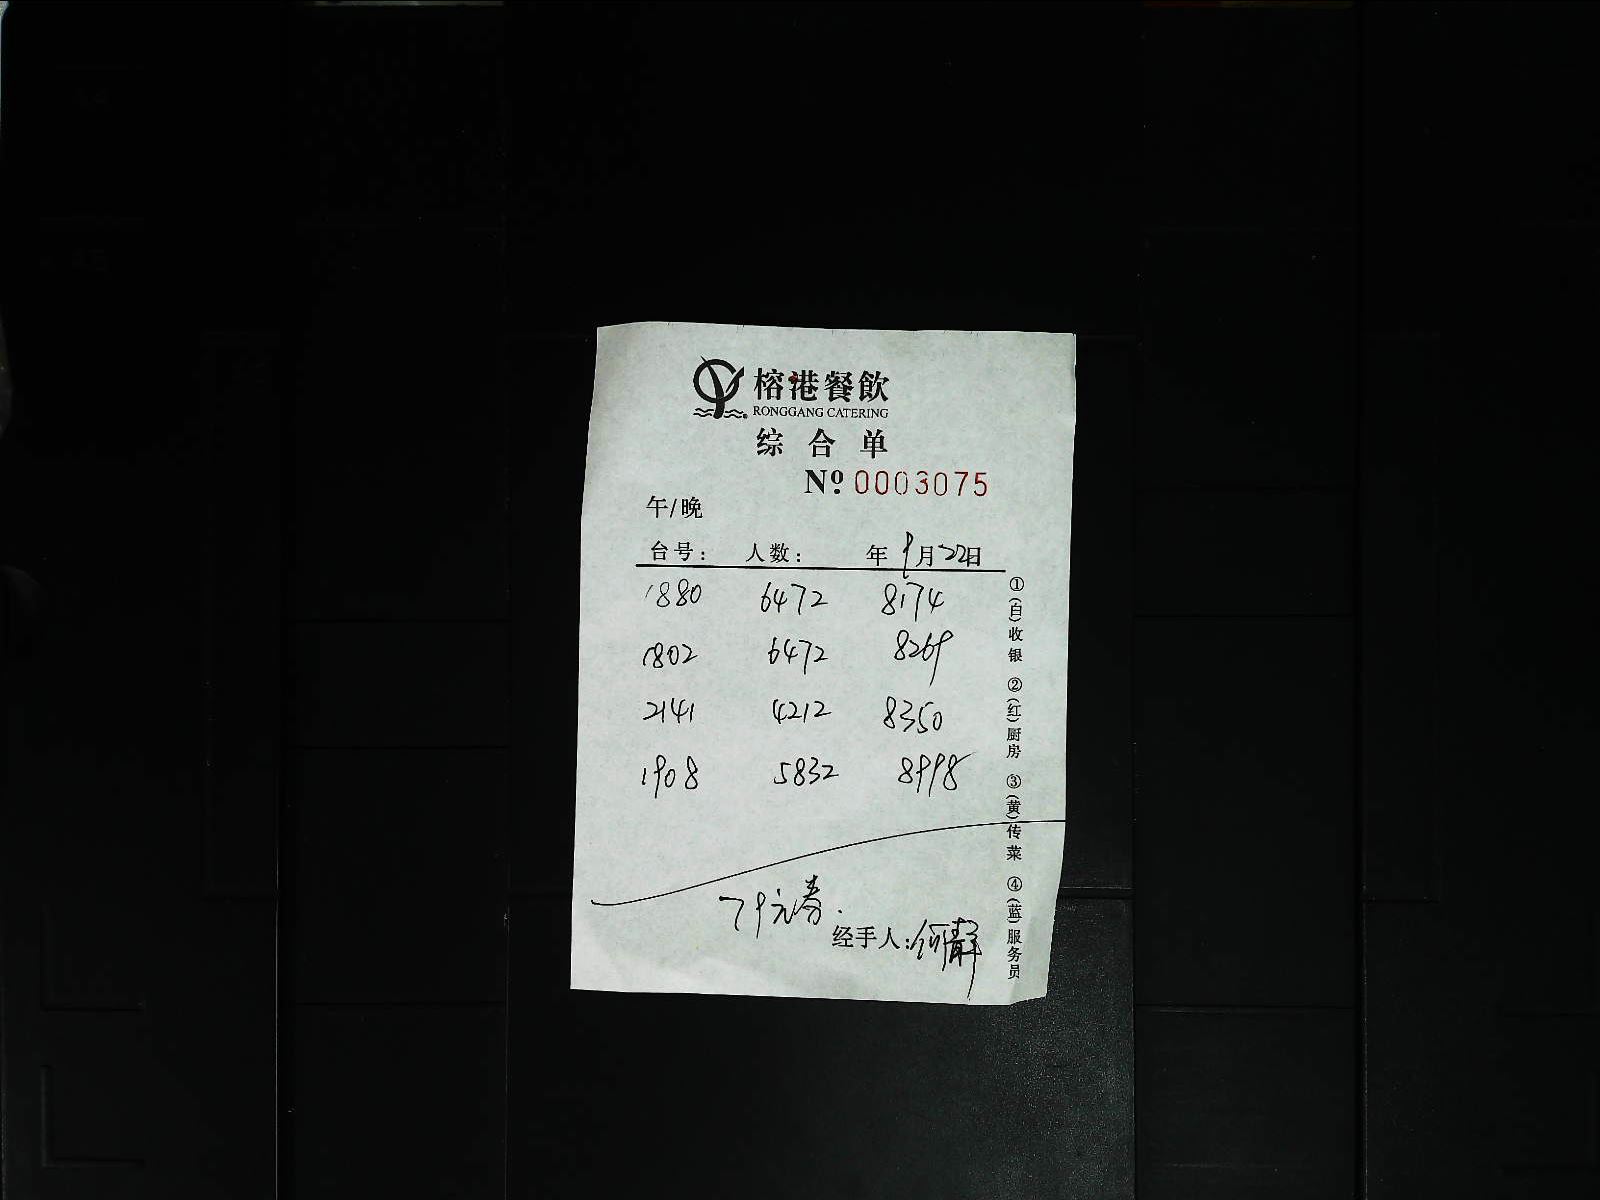 榕港餐飲
RONGGANG CATERING
综合单
Nº 0003075
午/晚
台号: 人数: 年 9月22日
1880 6472 8174
1802 6472 8269
2141 4212 8350
1908 5832 8998
元券.
经手人:何静
①(白)收银 ②(红)厨房 ③(黄)传菜 ④(蓝)服务员